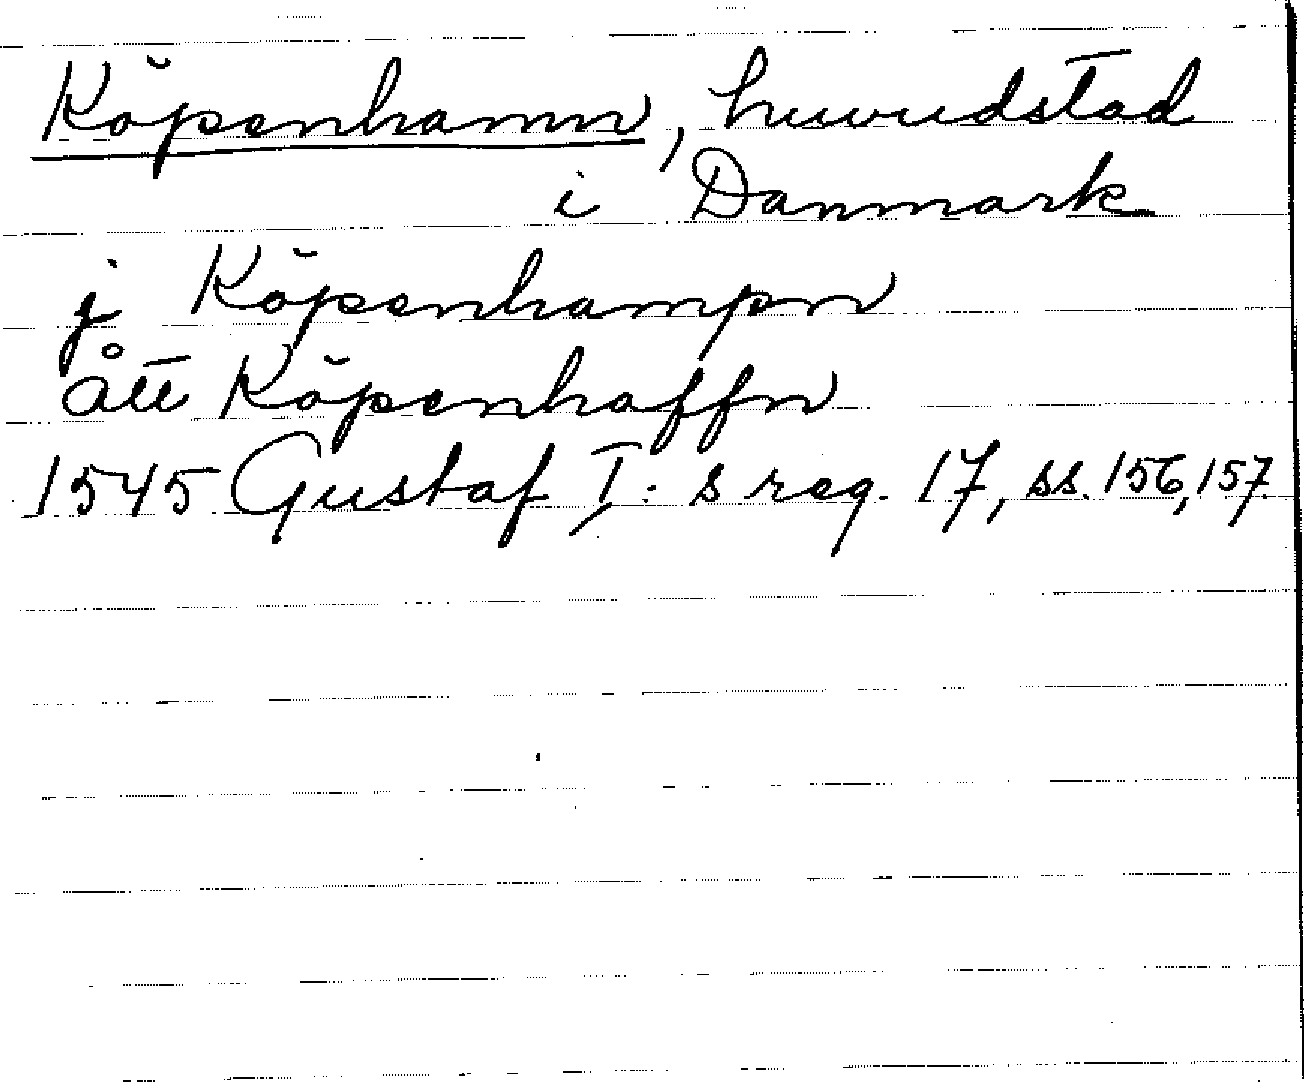 Köpenhamn, huvudstad
i Danmark
j Köpenhampn
ått Köpenhaffn
1545 Gustaf I:s reg. 17, ss. 156, 157.